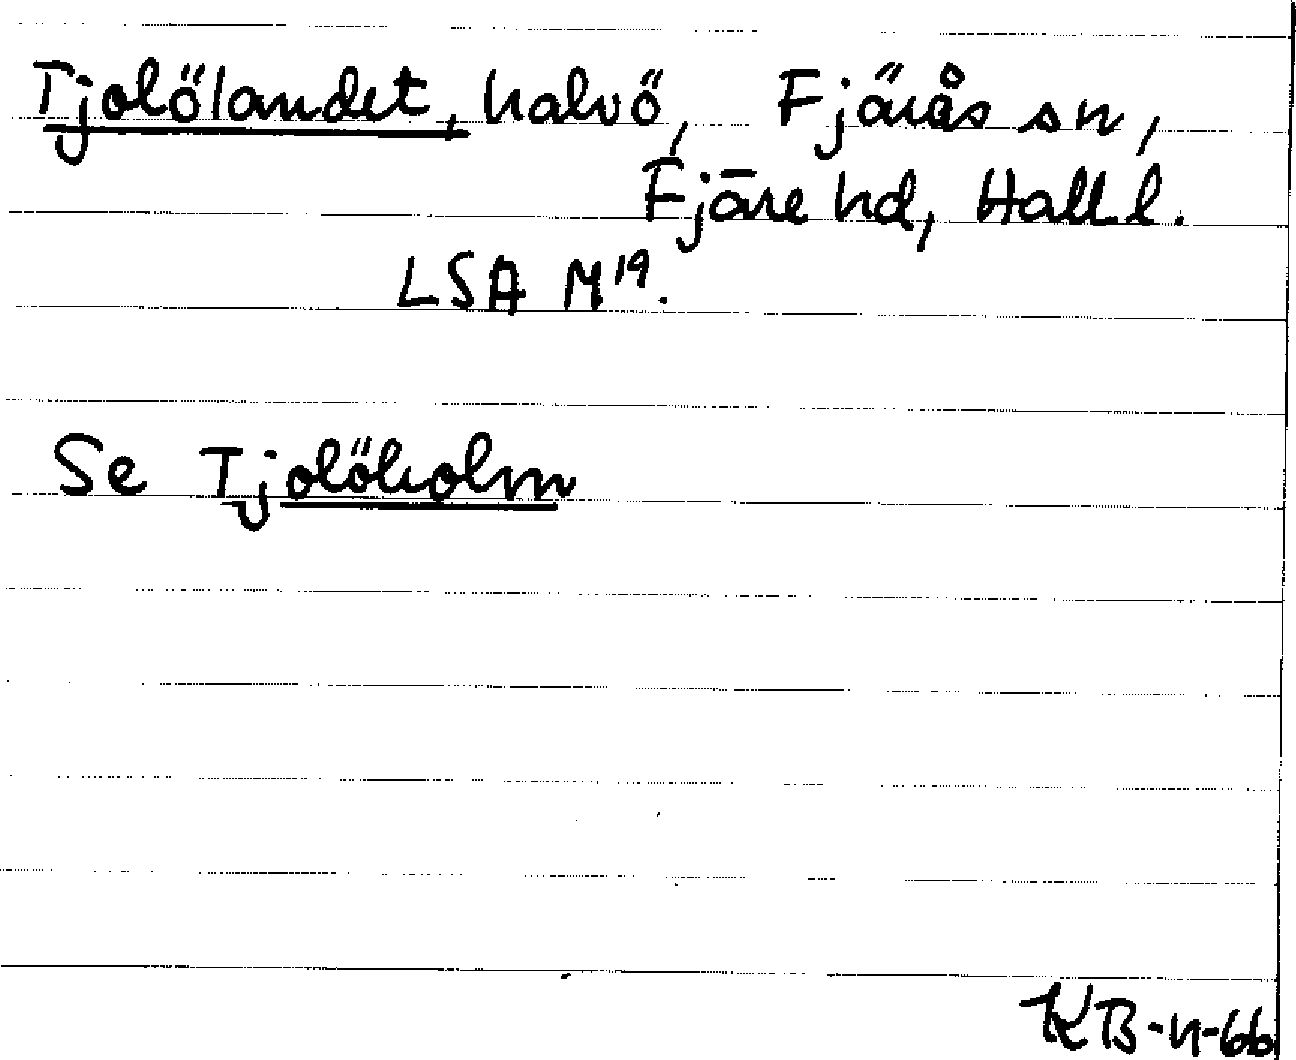 Tjolölandet, halvö, Fjärås sn,
Fjäre hd, Hall l.
LSA M19.
Se Tjolöholm
KB-n-66